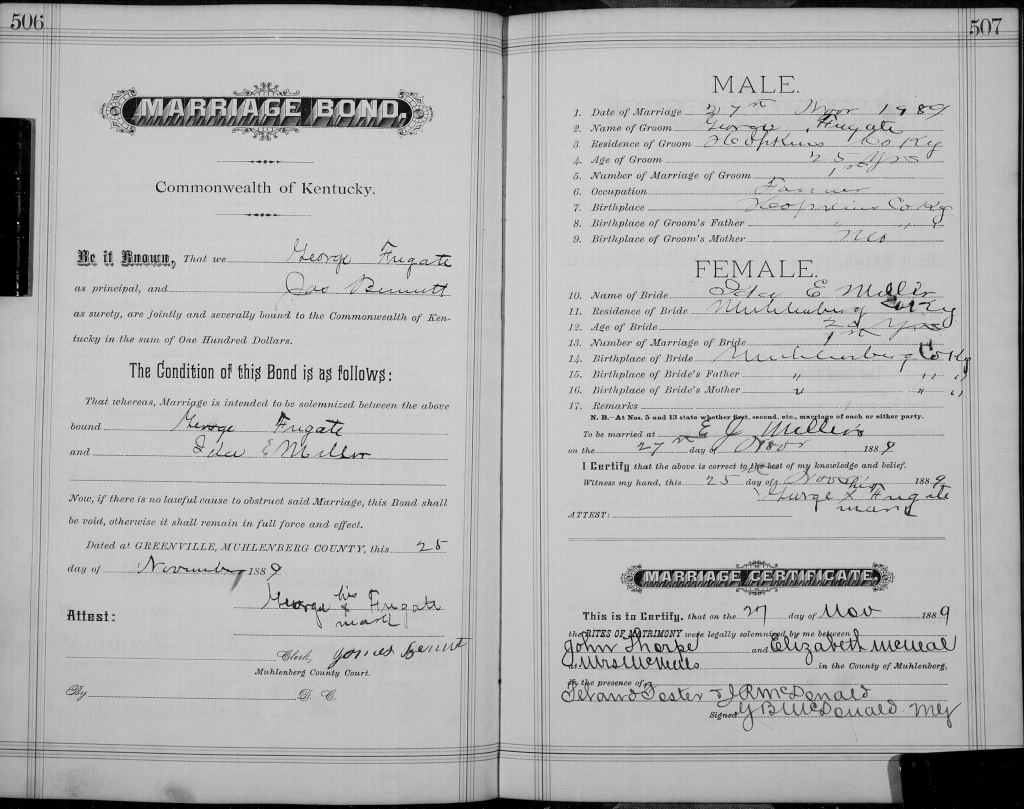 506
MARRIAGE BOND.
Commonwealth of Kentucky.
Be it Known, That we George Frugate
as principal, and Jas Bennett
as surety, are jointly and severally bound to the Commonwealth of Ken-
tucky in the sum of One Hundred Dollars.
The Condition of this Bond is as follows:
That whereas, Marriage is intended to be solemnized between the above
bound George Frugate
and Ida E Miller
Now, if there is no lawful cause to obstruct said Marriage, this Bond shall
be void, otherwise it shall remain in full force and effect.
Dated at GREENVILLE, MUHLENBERG COUNTY, this 25
day of November 1889
George his x mark Frugate
Attest:
Clerk,
Muhlenberg County Court.
By D. C.
507
MALE.
1. Date of Marriage 27th Nov 1889
2. Name of Groom George Frugate
3. Residence of Groom Hopkins Co Ky
4. Age of Groom 25 yrs
5. Number of Marriage of Groom 1st
6. Occupation Farmer
7. Birthplace Hopkins Co Ky
8. Birthplace of Groom's Father " " "
9. Birthplace of Groom's Mother
FEMALE.
10. Name of Bride Ida E Miller
11. Residence of Bride Muhlenberg Co Ky
12. Age of Bride yrs
13. Number of Marriage of Bride 1st
14. Birthplace of Bride Muhlenberg Co Ky
15. Birthplace of Bride's Father " " "
16. Birthplace of Bride's Mother " " "
17. Remarks
N. B.—At Nos. 5 and 13 state whether first, second, etc., marriage of each or either party.
To be married at E J Miller's
on the 27th day of Nov 1889
I Certify that the above is correct to the best of my knowledge and belief.
Witness my hand, this 25th day of Nov 1889
George his x mark Frugate
ATTEST:
MARRIAGE CERTIFICATE.
This is to Certify, that on the 27 day of Nov 1889
the RITES OF MATRIMONY were legally solemnized by me between
John Thorpe and Elizabeth McNeal
at Mrs McNeels in the County of Muhlenberg,
in the presence of
Foster & J R McDonald
Signed, G B McDonald MG